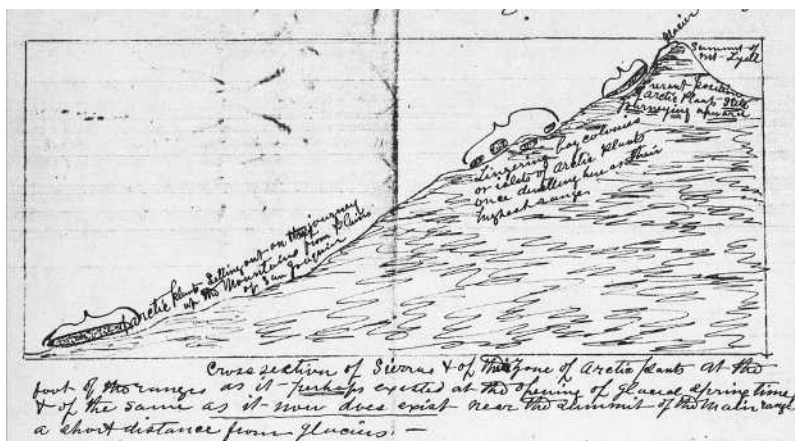 Glacier
Summit of
Mt. Lyell
Present position
Arctic Plants still
journeying upward
Lingering bog colonies
or islets of Arctic plants
once dwelling here as their
highest ranges
Arctic plants Setting out on their journey
up the Mountains from plains
of San Joaquin
Cross section of Sierras & of the Zone of Arctic plants at the
foot of the ranges as it perhaps existed at the opening of glacial spring time,
& of the same as it now does exist near the summit of the main range
a short distance from glaciers. —